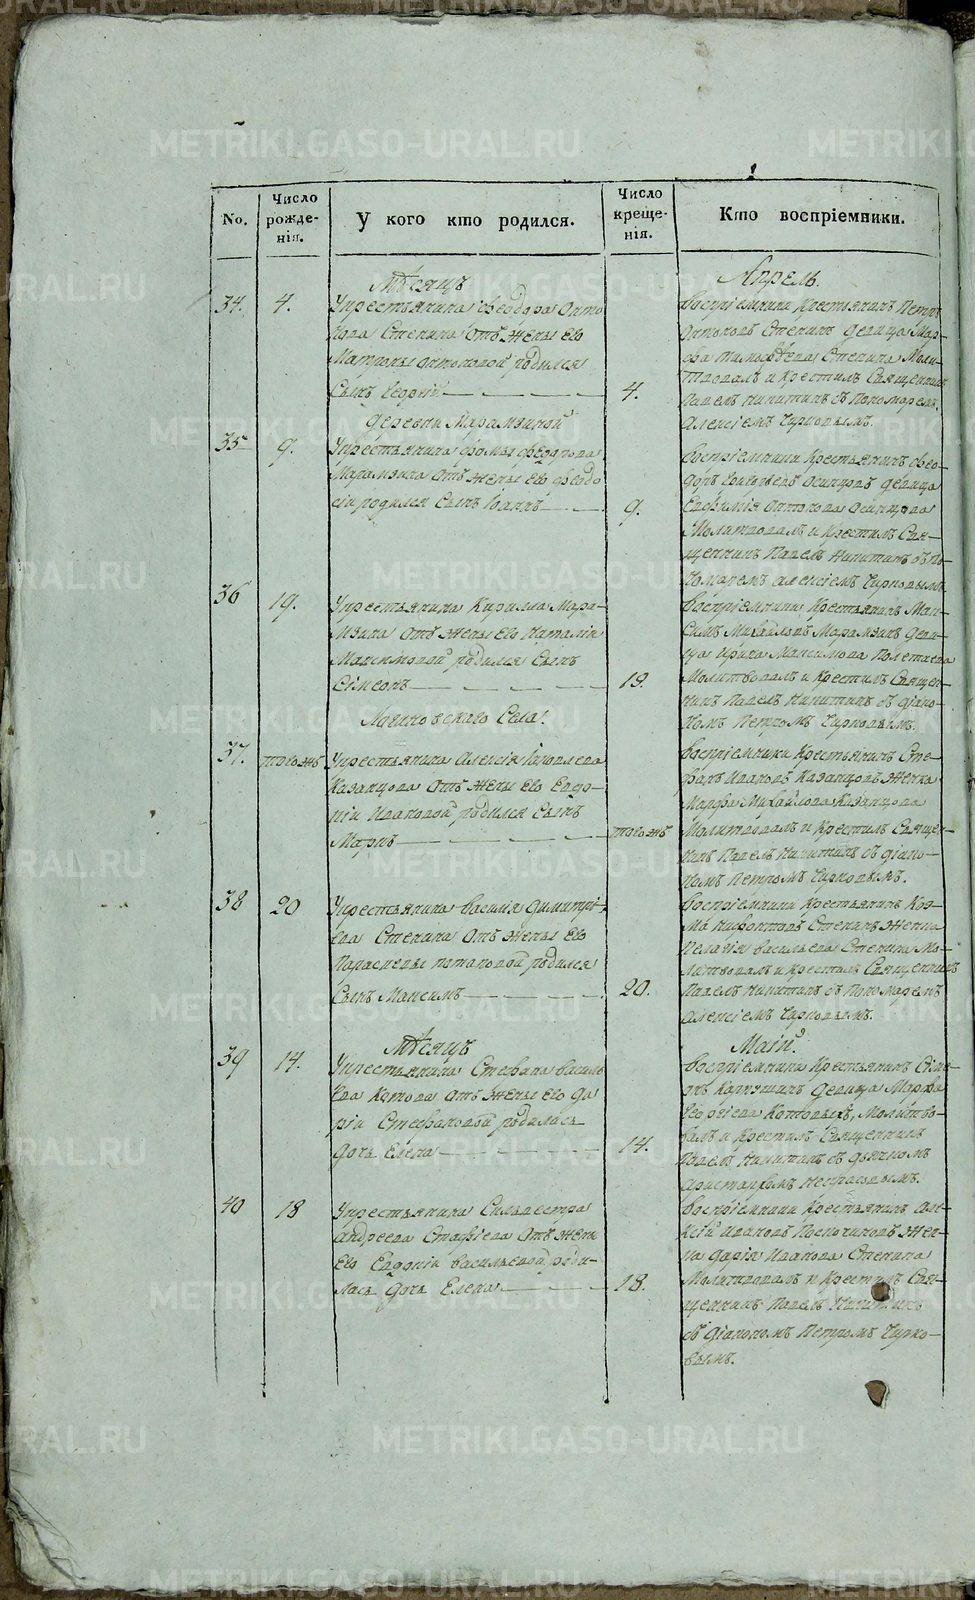 No.
Число рожде-нія.
У кого кто родился.
Число креще-нія.
Кто воспріемники.
Мѣсяцъ
Апрель.
34. 4.
Укрестьянина Феодора Анто
нова Степина Отъ жены Его
Матроны Антоновой родился
Сынъ Георгій
4.
Воспріемники Крестьянинъ Петръ
Антоновъ Степинъ девица Мар-
фа Тимофеева Степина Моли-
твовалъ и Крестилъ Священникъ
Павелъ Никитинъ съ Пономаремъ
Алексіемъ Чирковымъ.
Деревни Марамзиной
35 9.
Укрестьянина Фомы Феодорова
Марамзина Отъ жены Его Феодо
сіи родился Сынъ Іоаннъ
9.
Воспріемники Крестьянинъ Фео-
доръ Осинцовъ девица
Евфимія Антонова Осинцова
Молитвовалъ и Крестилъ Свя-
щенникъ Павелъ Никитинъ съ По-
номаремъ Алексіемъ Чирковымъ
36 19.
Укрестьянина Кирилла Мара-
мзина Отъ жены Его Наталіи
Максимовой родился Сынъ
Сімеонъ
19.
Воспріемники Крестьянинъ Мак-
симъ Михайловъ Марамзинъ деви-
ца Ирина Максимова Полетаева
Молитвовалъ и Крестилъ Священ-
никъ Павелъ Никитинъ съ діако-
номъ Петромъ Чирковымъ.
Логиновскаго Села.
37. тогожъ
Укрестьянина Алексія Яковлева
Казанцова Отъ жены Его Евдо-
кіи Ивановой родился Сынъ
Маркъ
тогожъ
Воспріемники Крестьянинъ Сте-
фанъ Ивановъ Казанцовъ женка
Марфа Михайлова Казанцова
Молитвовалъ и Крестилъ Священ-
никъ Павелъ Никитинъ съ діако-
номъ Петромъ Чирковымъ.
38 20
Укрестьянина Василія Димитрі-
ева Степина Отъ жены Его
Параскевы Потаповой родился
Сынъ Максимъ
20.
Воспріемники Крестьянинъ Коз-
ма Нифонтовъ Степинъ женка
Пелагія Васильева Степина Мо-
литвовалъ и Крестилъ Священникъ
Павелъ Никитинъ съ Пономаремъ
Алексіемъ Чирковымъ.
Мѣсяцъ
Маій.
39 14.
Укрестьянина Стефана Василь
ева Котова Отъ жены Его Да
ріи Стефановой родилась
Дочь Елена
14.
Воспріемники Крестьянинъ Сіме-
онъ девица Марфа
Георгіева Котовыхъ, Молитво-
валъ и Крестилъ Священникъ
Павелъ Никитинъ съ дьячкомъ
40 18
Укрестьянина Сильвестра
Андреева Отъ жены
Его Евдокіи Васильевой роди-
лась Дочь Елена
18.
Воспріемники Крестьянинъ Але-
ксій Ивановъ жен-
ка Дарія Иванова Степина
Молитвовалъ и Крестилъ Свя-
щенникъ Павелъ Никитинъ
съ діакономъ Петромъ Чирко-
вымъ.
METRIKI.GASO-URAL.RU